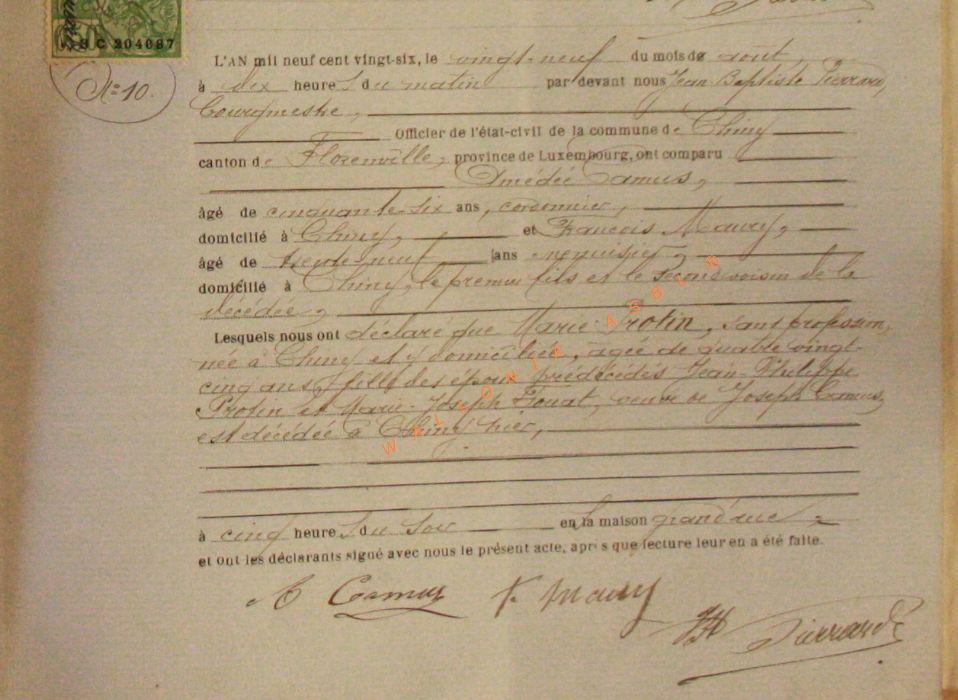 C 204087
N° 10.
L'AN mil neuf cent vingt-six, le vingt-neuf du mois de août
à dix heure s du matin par devant nous Jean-Baptiste Pierrard,
Bourgmestre,
Officier de l'état-civil de la commune de Chiny
canton de Florenville, province de Luxembourg, ont comparu
Amédée Camus,
âgé de cinquante-six ans, cordonnier,
domicilié à Chiny, et François Maury,
âgé de trente-neuf ans menuisier,
domicilié à Chiny, le premier fils et le second voisin de la
décédée,
Lesquels nous ont déclaré que Marie Protin, sans profession,
née à Chiny et y domiciliée, âgée de quatre vingt-
cinq ans, fille des époux prédécédés Jean-Philippe
Protin et Marie-Joseph, veuve de Joseph Camus,
est décédée à Chiny hier,
à cinq heure s du soir en la maison grand'rue,
et ont les déclarants signé avec nous le présent acte, après que lecture leur en a été faite.
A Camus F. Maury
JB Pierrard
WALLONIA ASBL